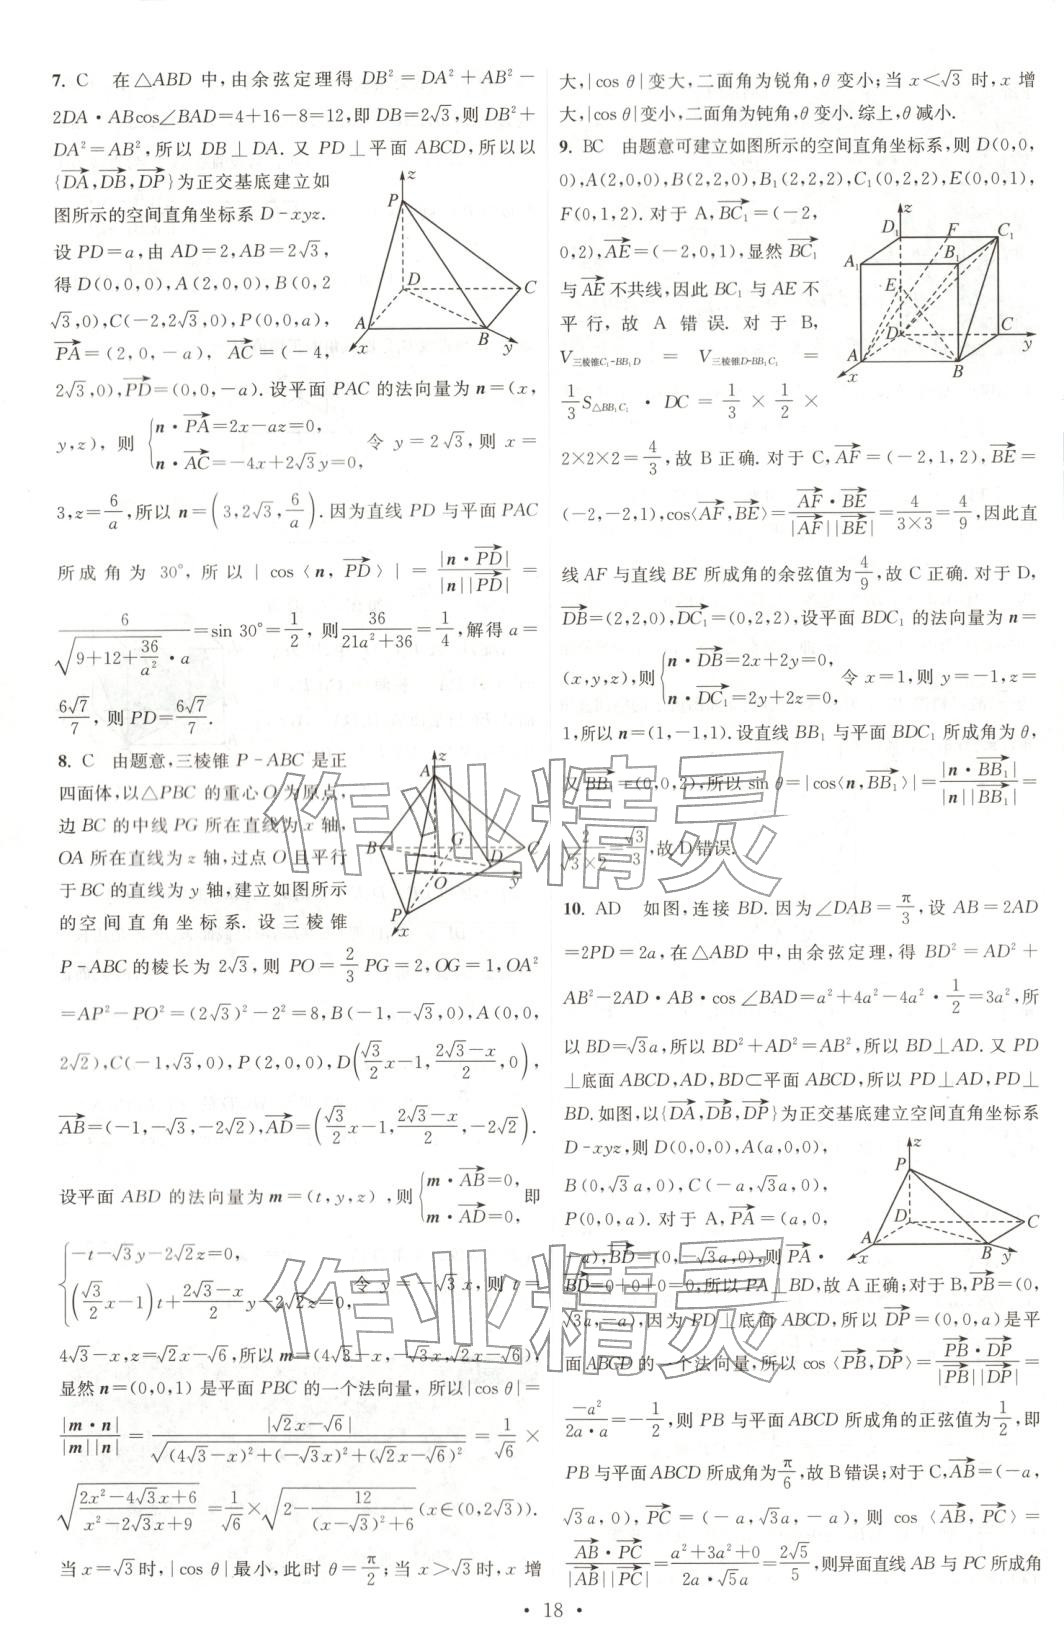 7. C 在△ABD 中,由余弦定理得 DB²=DA²+AB²-
2DA·ABcos∠BAD=4+16-8=12,即 DB=2√3,则DB²+
DA²=AB²,所以 DB⊥DA. 又 PD⊥平面 ABCD,所以以
{DA→,DB→,DP→}为正交基底建立如
图所示的空间直角坐标系 D-xyz.
设 PD=a,由 AD=2,AB=2√3,
得 D(0,0,0),A(2,0,0),B(0,2
√3,0),C(-2,2√3,0),P(0,0,a),
PA→=(2,0,-a), AC→=(-4,
2√3,0),PD→=(0,0,-a).设平面 PAC 的法向量为 n=(x,
y,z), 则 {n·PA→=2x-az=0, n·AC→=-4x+2√3y=0, 令 y=2√3,则 x=
3,z=6/a,所以 n=(3,2√3,6/a).因为直线 PD 与平面 PAC
所成角为 30°,所以|cos⟨n,PD→⟩|=|n·PD→|/|n||PD→|=
6/(√(9+12+36/a²)·a)=sin 30°=1/2, 则36/(21a²+36)=1/4,解得 a=
6√7/7, 则 PD=6√7/7.
8. C 由题意,三棱锥 P-ABC 是正
四面体,以△PBC 的重心 O 为原点,
边 BC 的中线 PG 所在直线为 x 轴,
OA 所在直线为 z 轴,过点 O 且平行
于 BC 的直线为 y 轴,建立如图所示
的空间直角坐标系. 设三棱锥
P-ABC 的棱长为 2√3,则 PO=2/3 PG=2,OG=1,OA²
=AP²-PO²=(2√3)²-2²=8,B(-1,-√3,0),A(0,0,
2√2),C(-1,√3,0),P(2,0,0),D(√3/2 x-1,(2√3-x)/2,0),
AB→=(-1,-√3,-2√2),AD→=(√3/2 x-1,(2√3-x)/2,-2√2).
设平面 ABD 的法向量为 m=(t,y,z),则{m·AB→=0, m·AD→=0, 即
{-t-√3y-2√2z=0, (√3/2 x-1)t+(2√3-x)/2 y-2√2z=0, 令 y=-√3x,则 t=
4√3-x,z=√2x-√6,所以 m=(4√3-x,-√3x,√2x-√6),
显然 n=(0,0,1)是平面 PBC 的一个法向量,所以|cos θ|=
|m·n|/|m||n|=|√2x-√6|/√((4√3-x)²+(-√3x)²+(√2x-√6)²)=1/√6×
√((2x²-4√3x+6)/(x²-2√3x+9))=1/√6×√(2-12/((x-√3)²+6))(x∈(0,2√3)).
当 x=√3时,|cos θ|最小,此时 θ=π/2;当 x>√3时,x 增
大,|cos θ|变大,二面角为锐角,θ 变小;当 x<√3 时,x 增
大,|cos θ|变小,二面角为钝角,θ变小.综上,θ减小.
9. BC 由题意可建立如图所示的空间直角坐标系,则 D(0,0,
0),A(2,0,0),B(2,2,0),B₁(2,2,2),C₁(0,2,2),E(0,0,1),
F(0,1,2). 对于 A,BC₁→=(-2,
0,2),AE→=(-2,0,1),显然 BC₁→
与AE→不共线,因此 BC₁ 与 AE 不
平行, 故 A 错误. 对于 B,
V三棱锥C₁-BB₁D = V三棱锥D-BB₁C₁ =
1/3 S△BB₁C₁ · DC = 1/3 × 1/2 ×
2×2×2=4/3,故 B 正确. 对于 C,AF→=(-2,1,2),BE→=
(-2,-2,1),cos⟨AF→,BE→⟩=AF→·BE→/|AF→||BE→|=4/(3×3)=4/9,因此直
线 AF 与直线 BE 所成角的余弦值为4/9,故 C 正确. 对于 D,
DB→=(2,2,0),DC₁→=(0,2,2),设平面 BDC₁ 的法向量为 n=
(x,y,z),则{n·DB→=2x+2y=0, n·DC₁→=2y+2z=0, 令 x=1,则 y=-1,z=
1,所以 n=(1,-1,1). 设直线 BB₁ 与平面 BDC₁ 所成角为 θ,
又 BB₁→=(0,0,2),所以 sin θ=|cos⟨n,BB₁→⟩|=|n·BB₁→|/|n||BB₁→|=
2/(√3×2)=√3/3,故 D 错误.
10. AD 如图,连接 BD. 因为∠DAB=π/3,设 AB=2AD
=2PD=2a,在△ABD 中,由余弦定理,得 BD²=AD²+
AB²-2AD·AB·cos∠BAD=a²+4a²-4a²·1/2=3a²,所
以 BD=√3a,所以 BD²+AD²=AB²,所以 BD⊥AD. 又 PD
⊥底面 ABCD,AD,BD⊂平面 ABCD,所以 PD⊥AD,PD⊥
BD. 如图,以{DA→,DB→,DP→}为正交基底建立空间直角坐标系
D-xyz,则 D(0,0,0),A(a,0,0),
B(0,√3a,0),C(-a,√3a,0),
P(0,0,a). 对于 A,PA→=(a,0,
-a),BD→=(0,-√3a,0),则 PA→·
BD→=0+0+0=0,所以 PA⊥BD,故 A 正确;对于 B,PB→=(0,
√3a,-a),因为 PD⊥底面 ABCD,所以 DP→=(0,0,a)是平
面 ABCD 的一个法向量,所以 cos⟨PB→,DP→⟩=PB→·DP→/|PB→||DP→|=
-a²/(2a·a)=-1/2,则 PB 与平面 ABCD 所成角的正弦值为1/2,即
PB 与平面 ABCD 所成角为π/6,故 B 错误;对于 C,AB→=(-a,
√3a,0),PC→=(-a,√3a,-a), 则 cos⟨AB→,PC→⟩=
AB→·PC→/|AB→||PC→|=(a²+3a²+0)/(2a·√5a)=2√5/5,则异面直线 AB 与 PC 所成角
·18·
作业精灵
作业精灵